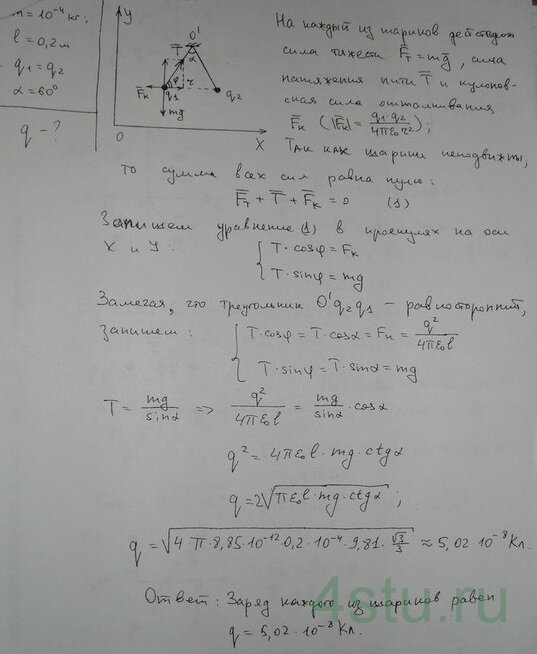 m = 10⁻⁴ кг.
l = 0,2 м
q₁ = q₂
α = 60°
q - ?
y
O'
T̅
α
F̅ₖ
φ
r
q₁
q₂
mg̅
O
X
На каждый из шариков действует
сила тяжести F̅т = mg̅, сила
натяжения нити T̅ и кулонов-
ская сила отталкивания
F̅ₖ (|F̅ₖ| = q₁·q₂/4πε₀r²);
Так как шарики неподвижны,
то сумма всех сил равна нулю:
F̅т + T̅ + F̅ₖ = 0 (1)
Запишем уравнение (1) в проекциях на оси
X и У: { T·cosφ = Fₖ
T·sinφ = mg
Замечая, что треугольник O'q₂q₁ - равносторонний,
запишем: { T·cosφ = T·cosα = Fₖ = q²/4πε₀l
T·sinφ = T·sinα = mg
T = mg/sinα => q²/4πε₀l = mg/sinα · cosα
q² = 4πε₀l·mg·ctgα
q = 2√πε₀l·mg·ctgα ;
q = √4·π·8,85·10⁻¹²·0,2·10⁻⁴·9,81·√3/3 ≈ 5,02·10⁻⁸ Кл.
Ответ: Заряд каждого из шариков равен
q = 5,02·10⁻⁸ Кл.
4stu.ru